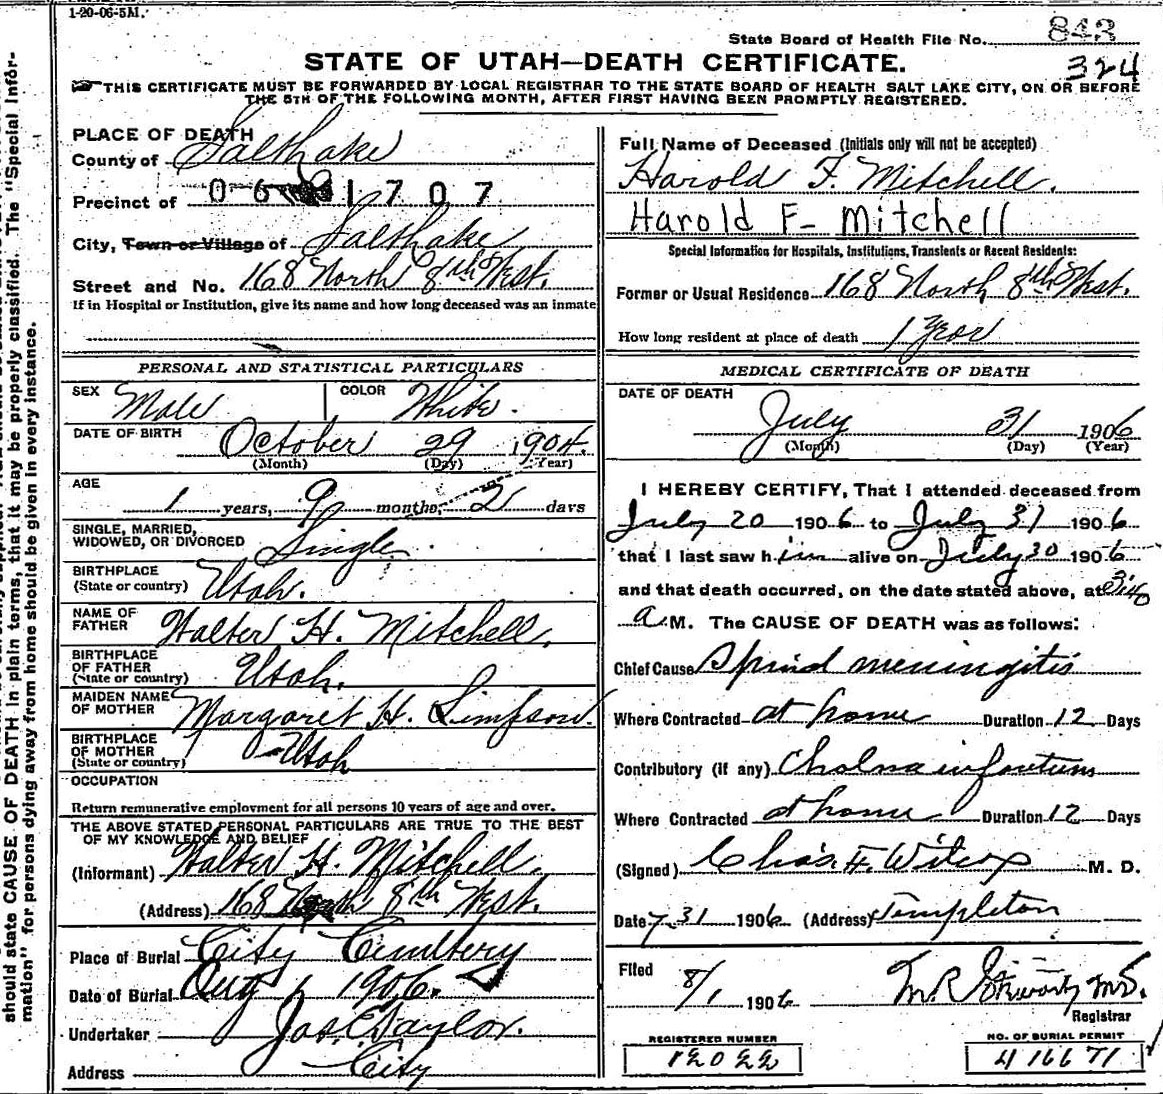 1-20-06-5M.
State Board of Health File No. 843
324
STATE OF UTAH—DEATH CERTIFICATE.
THIS CERTIFICATE MUST BE FORWARDED BY LOCAL REGISTRAR TO THE STATE BOARD OF HEALTH SALT LAKE CITY, ON OR BEFORE
THE 5TH OF THE FOLLOWING MONTH, AFTER FIRST HAVING BEEN PROMPTLY REGISTERED.
should state CAUSE OF DEATH in plain terms, that it may be properly classified. The "Special Infor-
mation" for persons dying away from home should be given in every instance.
PLACE OF DEATH
County of Salt Lake
Precinct of 06 1707
City, Town or Village of Salt Lake
Street and No. 168 North 8th West.
If in Hospital or Institution, give its name and how long deceased was an inmate
PERSONAL AND STATISTICAL PARTICULARS
SEX Male COLOR White.
DATE OF BIRTH October 29 1904.
(Month) (Day) (Year)
AGE
1 years, 9 months, 2 days
SINGLE, MARRIED,
WIDOWED, OR DIVORCED Single
BIRTHPLACE
(State or country) Utah.
NAME OF
FATHER Walter H. Mitchell,
BIRTHPLACE
OF FATHER
(State or country) Utah.
MAIDEN NAME
OF MOTHER Margaret H. Simpson.
BIRTHPLACE
OF MOTHER
(State or country) Utah
OCCUPATION
Return remunerative employment for all persons 10 years of age and over.
THE ABOVE STATED PERSONAL PARTICULARS ARE TRUE TO THE BEST
OF MY KNOWLEDGE AND BELIEF
(Informant) Walter H. Mitchell,
(Address) 168 North 8th West.
Place of Burial City Cemetery
Date of Burial Aug 1 1906.
Undertaker Jas. E. Taylor.
Address City
Full Name of Deceased (Initials only will not be accepted)
Harold F. Mitchell.
Harold F- Mitchell
Special Information for Hospitals, Institutions, Transients or Recent Residents:
Former or Usual Residence 168 North 8th West.
How long resident at place of death 1 Year
MEDICAL CERTIFICATE OF DEATH
DATE OF DEATH
July 31 1906
(Month) (Day) (Year)
I HEREBY CERTIFY, That I attended deceased from
July 20 1906 to July 31 1906
that I last saw him alive on July 30 1906
and that death occurred, on the date stated above, at 3:40
a M. The CAUSE OF DEATH was as follows:
Chief Cause Spinal meningitis
Where Contracted at home Duration 12 Days
Contributory (if any) Cholera infantum
Where Contracted at home Duration 12 Days
(Signed) Chas. F. Wilcox M. D.
Date 7-31 1906 (Address) Templeton
Filed 8/1 1906
M.R. M.D.
Registrar
REGISTERED NUMBER
12022
NO. OF BURIAL PERMIT
416671